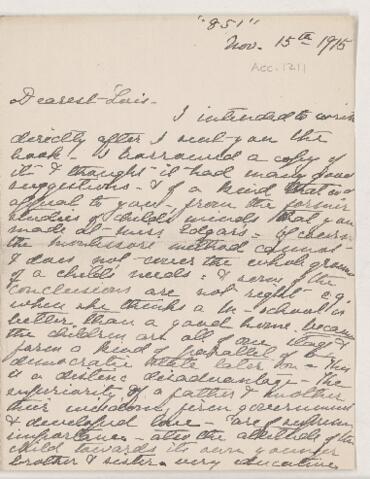 "851"
Nov. 15th 1915
Acc. 1211
Dearest Lois -
I intended to write
directly after I sent you the
book - I borrowed a copy of
it & thought it had many good
suggestions - & of a kind that would
appeal to you - from the former
studies of child's minds that you
made at Miss Edgars - Of course
the Montessori method cannot
& does not cover the whole ground
of a child's needs: & some of the
conclusions are not right e.g.
when she thinks a M - school is
better than a good home because
the children are all of one stage &
form a kind of parallel of the
democratic state later on - This
is a distinct disadvantage - The
superiority of a father & mother
their wisdom, firm government
& developed love - are of supreme
importance - also the attitude of the
child towards its own younger
brother & sister - very educative